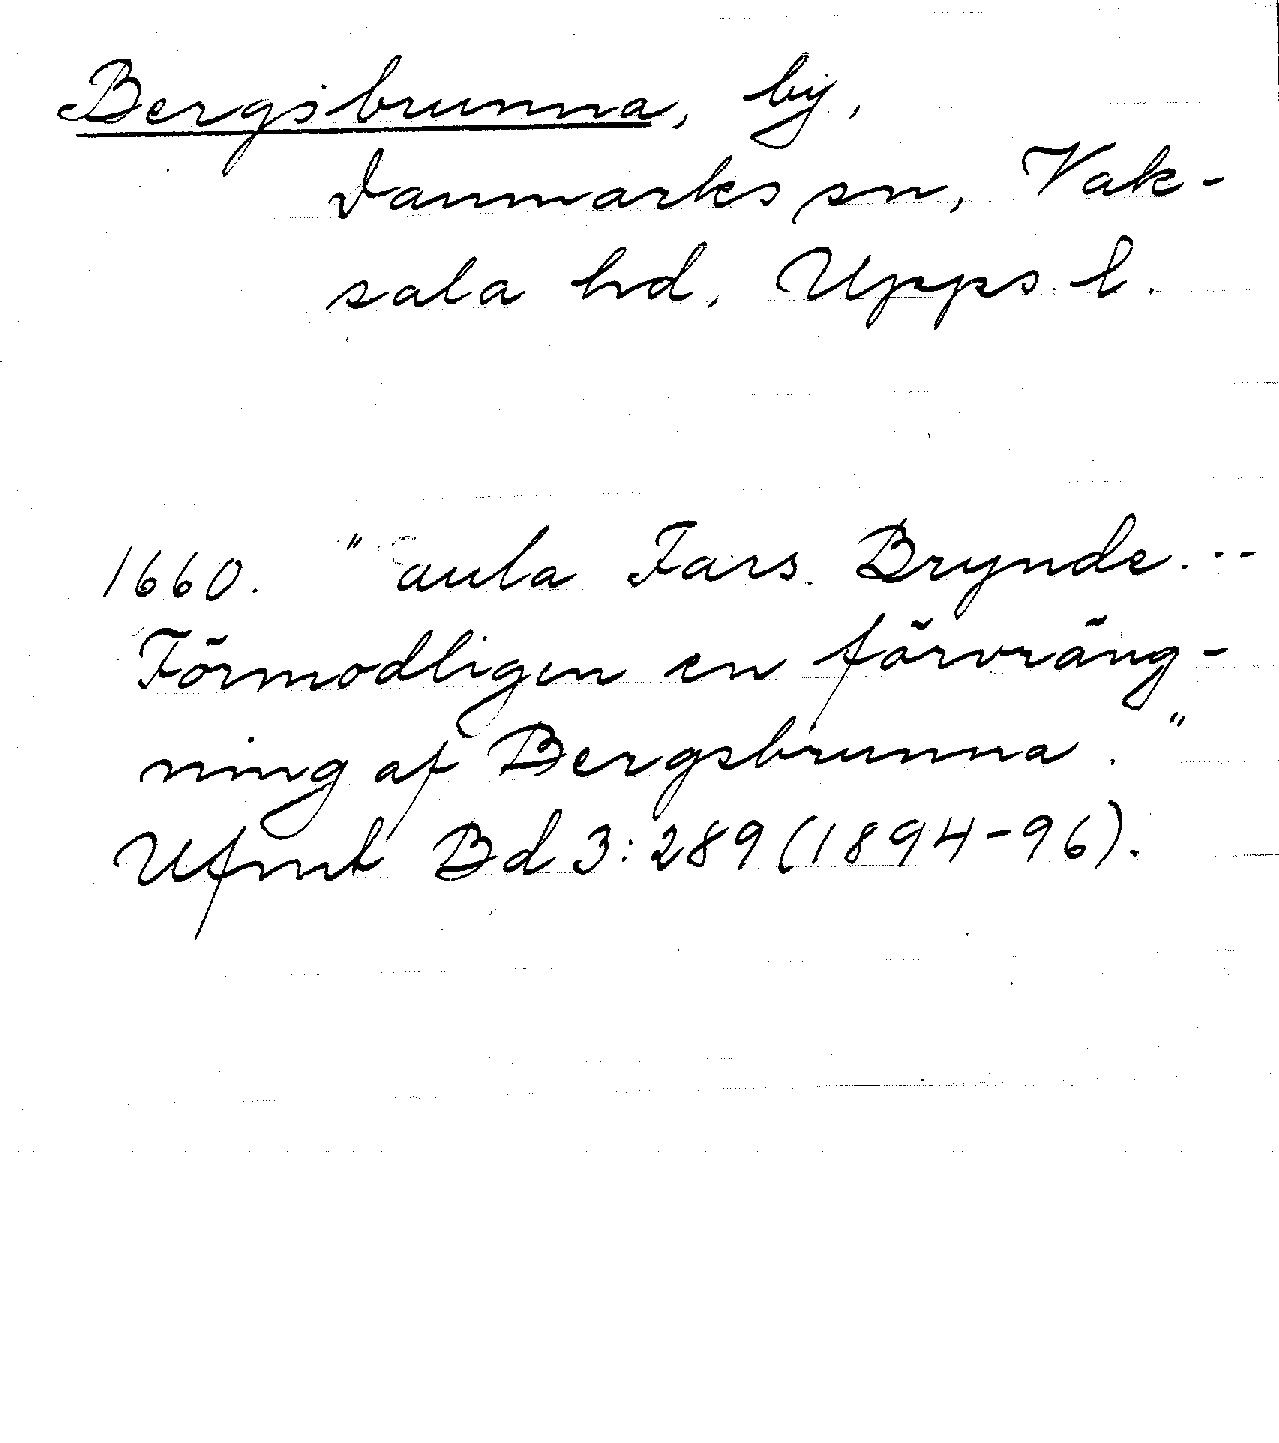 Bergsbrunna, by,
Danmarks sn, Vak-
sala hd, Upps. l.
1660. "aula Fars. Brynde. --
Förmodligen en förvräng-
ning af Bergsbrunna."
Ufmt Bd 3:289 (1894-96).